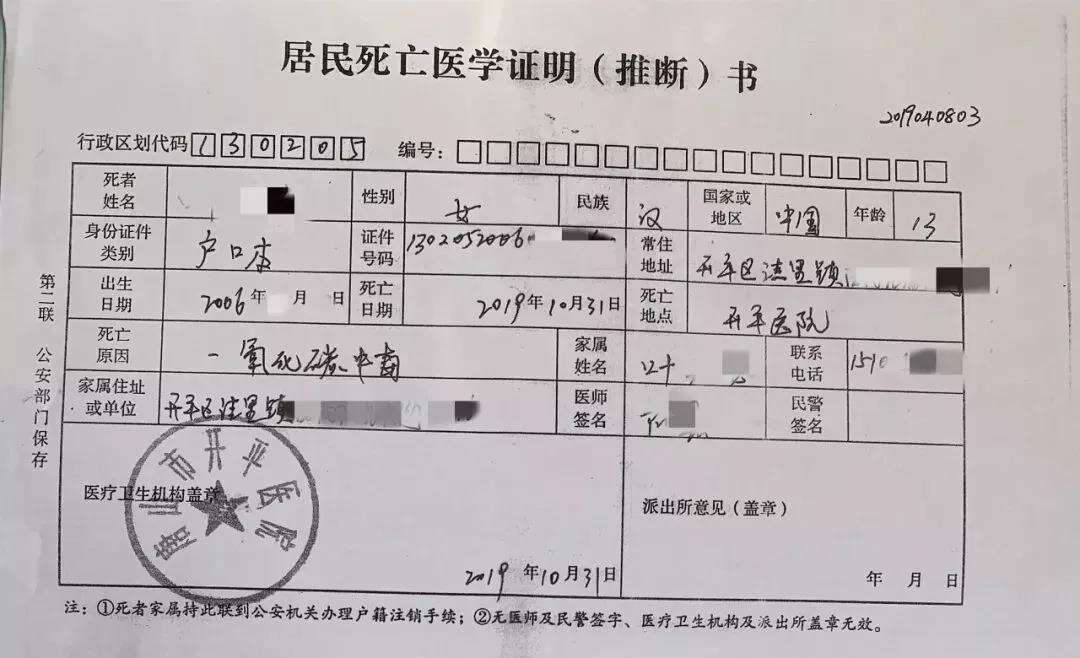 居民死亡医学证明（推断）书
2019040803
行政区划代码 130205 编号：
死者姓名 性别 女 民族 汉 国家或地区 中国 年龄 13
身份证件类别 户口本 证件号码 1302052006 常住地址 开平区洼里镇
出生日期 2006年 月 日 死亡日期 2019年10月31日 死亡地点 开平医院
死亡原因 一氧化碳中毒 家属姓名 联系电话 151
家属住址或单位 开平区洼里镇 医师签名 民警签名
医疗卫生机构盖章
唐山市开平医院
派出所意见（盖章）
2019年10月31日
年 月 日
注：①死者家属持此联到公安机关办理户籍注销手续；②无医师及民警签字、医疗卫生机构及派出所盖章无效。
第二联 公安部门保存